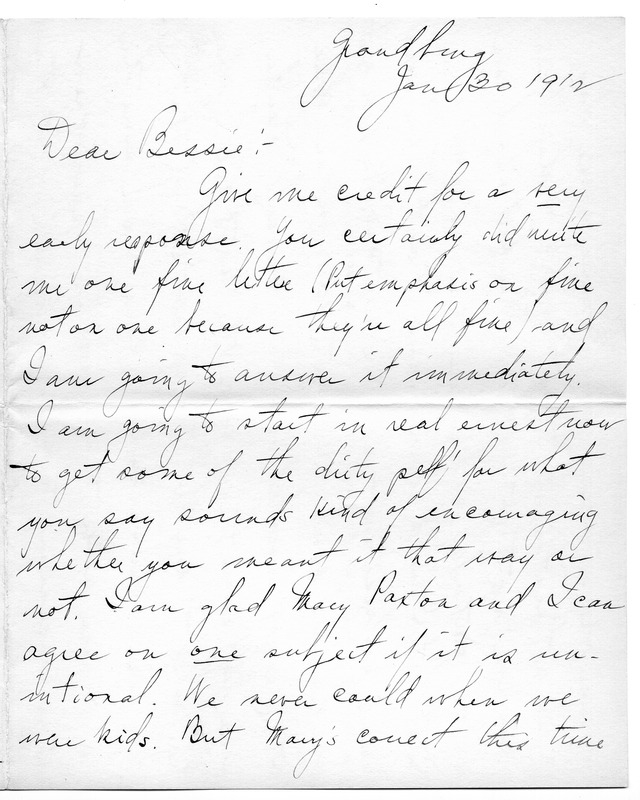 Grandview
Jan 30 1912
Dear Bessie:-
Give me credit for a very
early response. You certainly did write
me one fine letter (Put emphasis on fine
not on one because they're all fine) and
I am going to answer it immediately.
I am going to start in real ernest now
to get some of the dirty pelf for what
you say sounds kind of encouraging
whether you meant it that way or
not. I am glad Mary Paxton and I can
agree on one subject if it is un-
intional. We never could when we
were kids. But Mary's corect this time